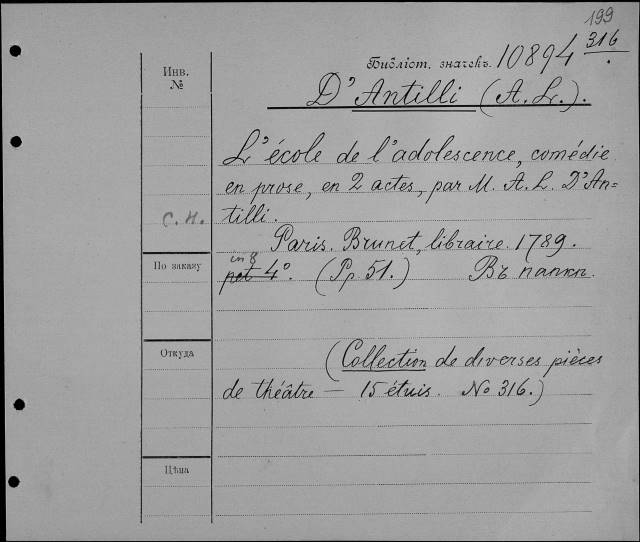 199
Библіот. значекъ 10894 316
Инв. №
D'Antilli (A. L.).
L'école de l'adolescence, comédie
en prose, en 2 actes, par M. A. L. D'An=
С. Н. tilli.
Paris. Brunet, libraire. 1789.
in 8
По заказу pet 4°. (Pp. 51.) Въ папкѣ.
Откуда (Collection de diverses pièces
de théâtre — 15 étuis. No 316.)
Цѣна